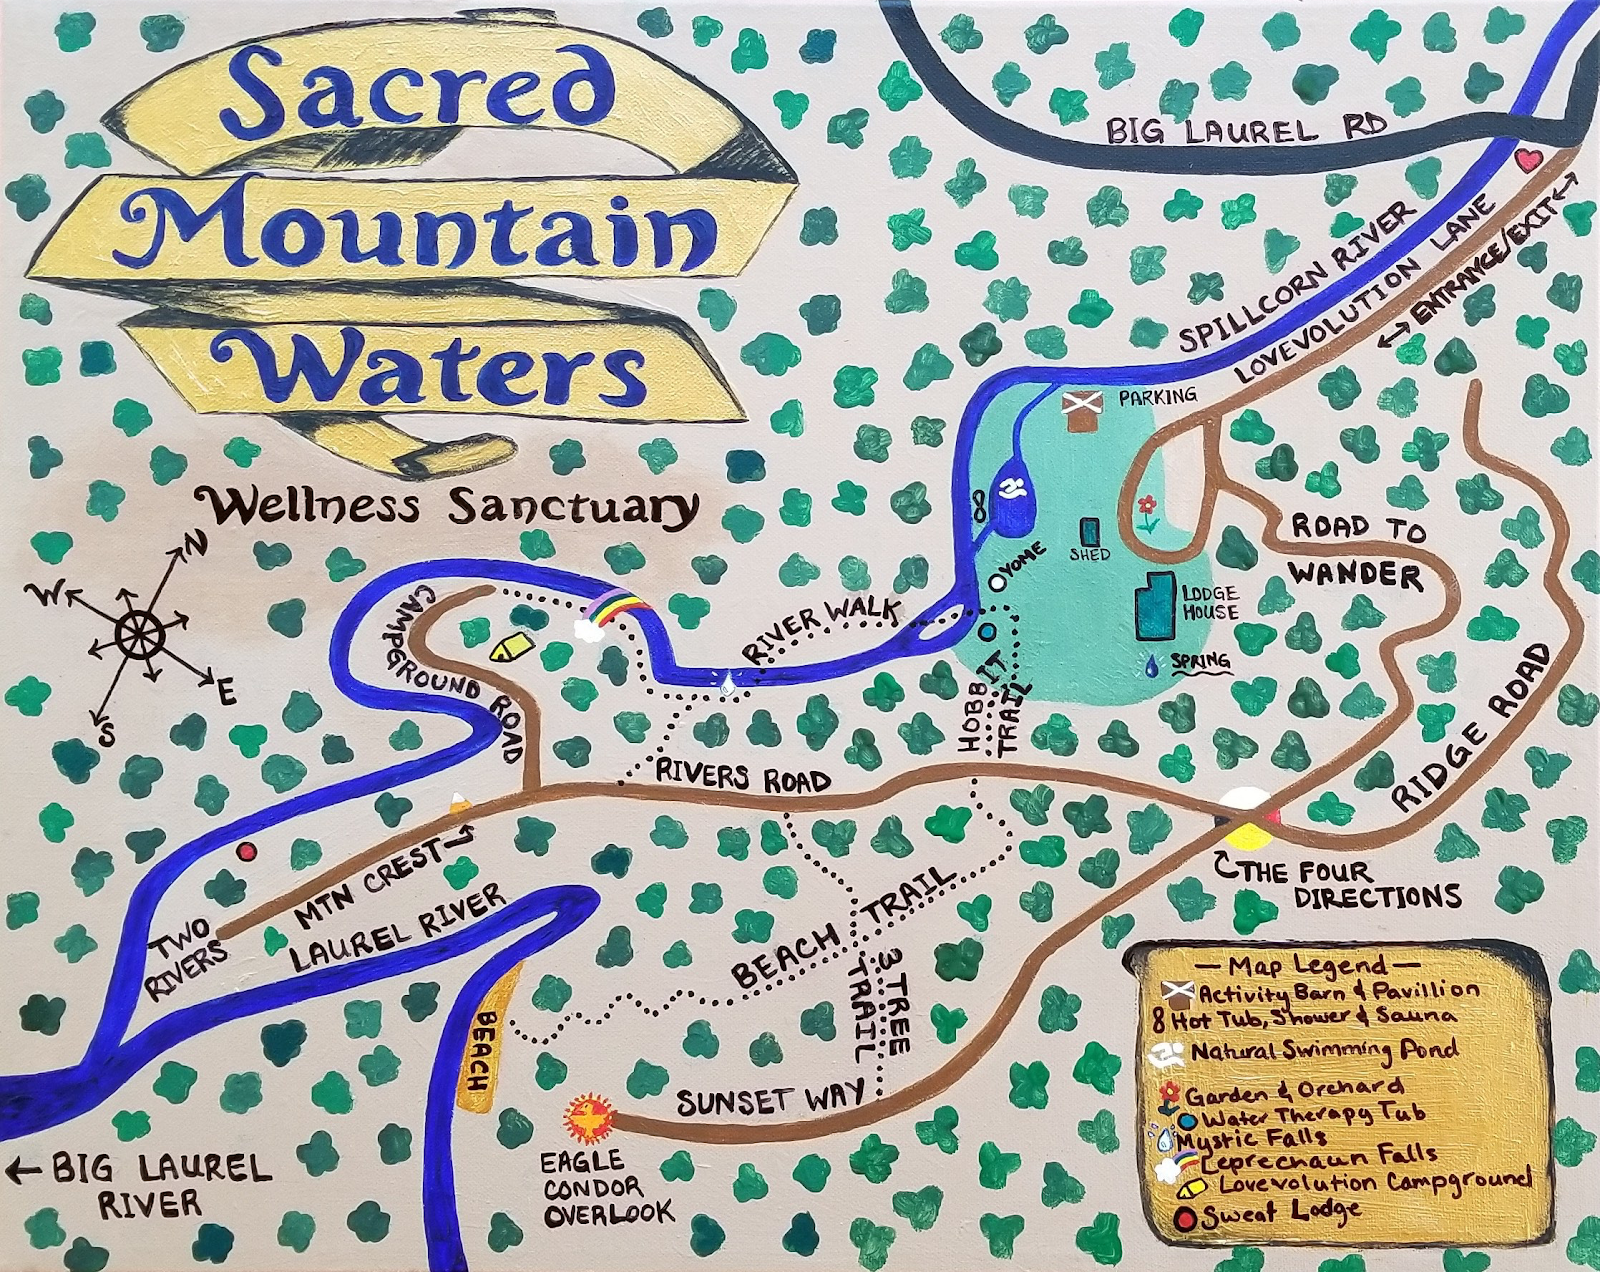 Sacred
Mountain
Waters
Wellness Sanctuary
N
W
E
S
BIG LAUREL RD
SPILLCORN RIVER
LOVEVOLUTION LANE
←→ ENTRANCE/EXIT ←→
PARKING
8
YOME
SHED
LODGE
HOUSE
SPRING
ROAD TO
WANDER
RIDGE ROAD
RIVER WALK
HOBBIT
TRAIL
CAMPGROUND ROAD
RIVERS ROAD
MTN CREST→
TWO
RIVERS
LAUREL RIVER
BEACH
BEACH TRAIL
3 TREE
TRAIL
THE FOUR
DIRECTIONS
SUNSET WAY
EAGLE
CONDOR
OVERLOOK
← BIG LAUREL
RIVER
— Map Legend —
Activity Barn & Pavillion
8 Hot Tub, Shower & Sauna
Natural Swimming Pond
Garden & Orchard
Water Therapy Tub
Mystic Falls
Leprechaun Falls
Lovevolution Campground
Sweat Lodge